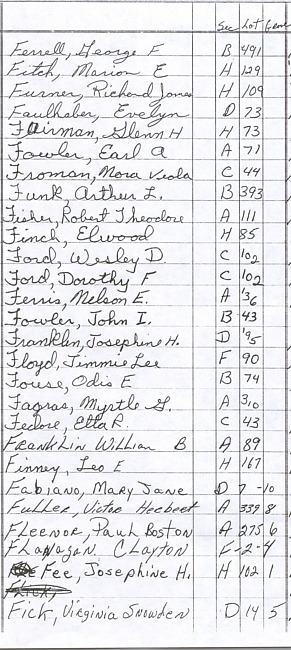 Sec Lot Grave
Ferrell, George F B 491
Fitch, Marion E H 129
Furner, Richard Jones H 109
Faulhaber, Evelyn D 73
Fairman, Glenn H H 73
Fowler, Earl A A 71
Froman, Mora Veola C 44
Funk, Arthur L. B 393
Fisher, Robert Theodore A 111
Finch, Elwood H 85
Ford, Wesley D. C 102
Ford, Dorothy F C 102
Ferris, Nelson E. A 136
Fowler, John I. B 43
Franklin, Josephine H. D 195
Floyd, Jimmie Lee F 90
Fouse, Odis E B 74
Fagras, Myrtle G. A 310
Fedore, Etta R. C 43
FRANKLIN William B A 89
Finney, Leo E H 167
Fabiano, Mary Jane D 7 -10
Fuller, Victor Herbert A 339 8
Fleenor, Paul Boston A 275 6
Flanagan. Clayton F-2-4
Fee, Josephine H. H 102 1
Fick, Virginia Snowden D 14 5